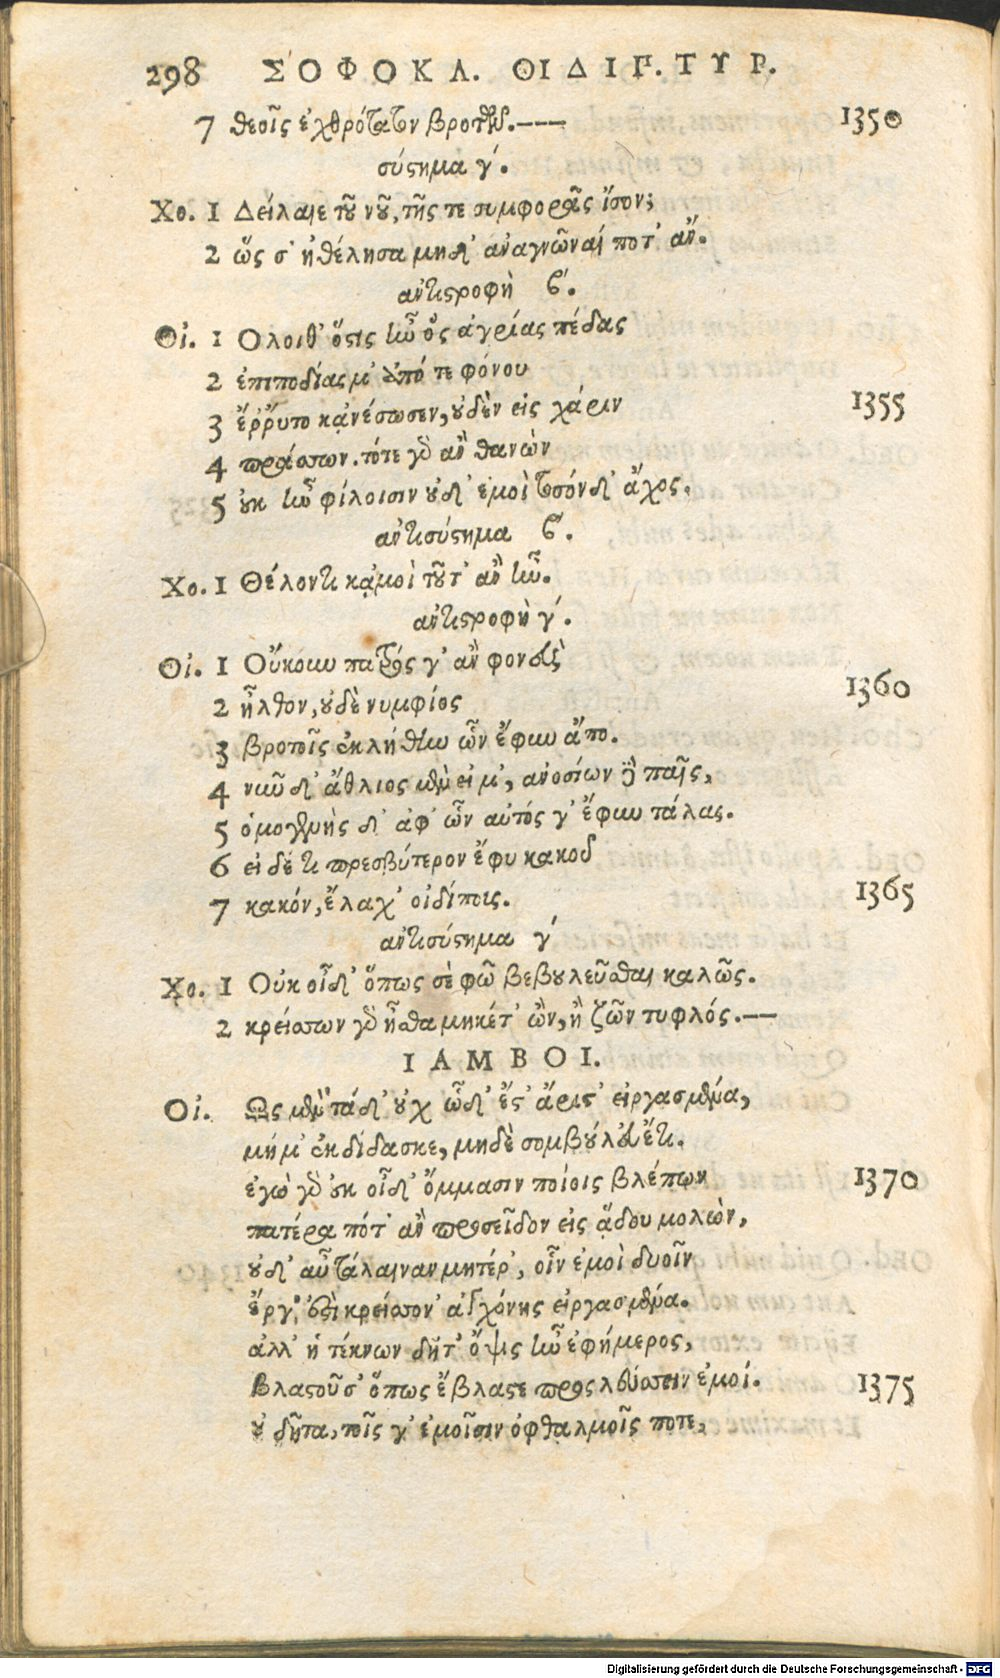 298 ΣΟΦΟΚΛ. ΟΙΔΙΠ. ΤΥΡ.
7 θεοῖς ἐχθρότατον βροτῶν.--- 1350
σύστημα γ΄.
Χο. 1 Δείλαιε τοῦ νοῦ, τῆς τε συμφορᾶς ἴσον;
2 ὥς σ' ἠθέλησα μηδ' ἀναγνῶναί ποτ' ἄν.
ἀντιστροφὴ β΄.
Οἰ. 1 Ὄλοιθ' ὅστις ἦν ὃς ἀγρίας πέδας
2 ἐπιποδίας μ' ἀπό τε φόνου
3 ἔῤῥυτο κἀνέσωσεν, οὐδὲν εἰς χάριν 1355
4 πράσσων. τότε γὰρ ἂν θανὼν
5 οὐκ ἦν φίλοισιν οὐδ' ἐμοὶ τοσόνδ' ἄχος.
ἀντισύστημα β΄.
Χο. 1 Θέλοντι κᾀμοὶ τοῦτ' ἂν ἦν.
ἀντιστροφὴ γ΄.
Οἰ. 1 Οὔκουν πατρός γ' ἂν φονεὺς
2 ἦλθον, οὐδὲ νυμφίος 1360
3 βροτοῖς ἐκλήθην ὧν ἔφυν ἄπο.
4 νῦν δ' ἄθλιος μὲν εἰμ', ἀνοσίων δὲ παῖς,
5 ὁμογενὴς δ' ἀφ' ὧν αὐτός γ' ἔφυν τάλας.
6 εἰ δέ τι πρεσβύτερον ἔφυ κακοῦ
7 κακόν, ἔλαχ' οἰδίπους. 1365
ἀντισύστημα γ΄
Χο. 1 Οὐκ οἶδ' ὅπως σὲ φῶ βεβουλεῦσθαι καλῶς.
2 κρείσσων γὰρ ἦσθα μηκέτ' ὢν, ἢ ζῶν τυφλός.--
ΙΑΜΒΟΙ.
Οἰ. Ὡς μὲν τάδ' οὐχ ὧδ' ἔστ' ἄριστ' εἰργασμένα,
μή μ' ἐκδίδασκε, μηδὲ συμβούλευ' ἔτι.
ἐγὼ γὰρ οὐκ οἶδ' ὄμμασιν ποίοις βλέπων 1370
πατέρα πότ' ἂν προσεῖδον εἰς ᾅδου μολὼν,
οὐδ' αὖ τάλαιναν μητέρ', οἷν ἐμοὶ δυοῖν
ἔργ' ἐστὶ κρείσσον' ἀγχόνης εἰργασμένα.
ἀλλ' ἡ τέκνων δῆτ' ὄψις ἦν ἐφήμερος,
βλαστοῦσ' ὅπως ἔβλαστε προσλεύσσειν ἐμοί. 1375
οὐ δῆτα, τοῖς γ' ἐμοῖσιν ὀφθαλμοῖς ποτε,
Digitalisierung gefördert durch die Deutsche Forschungsgemeinschaft - DFG